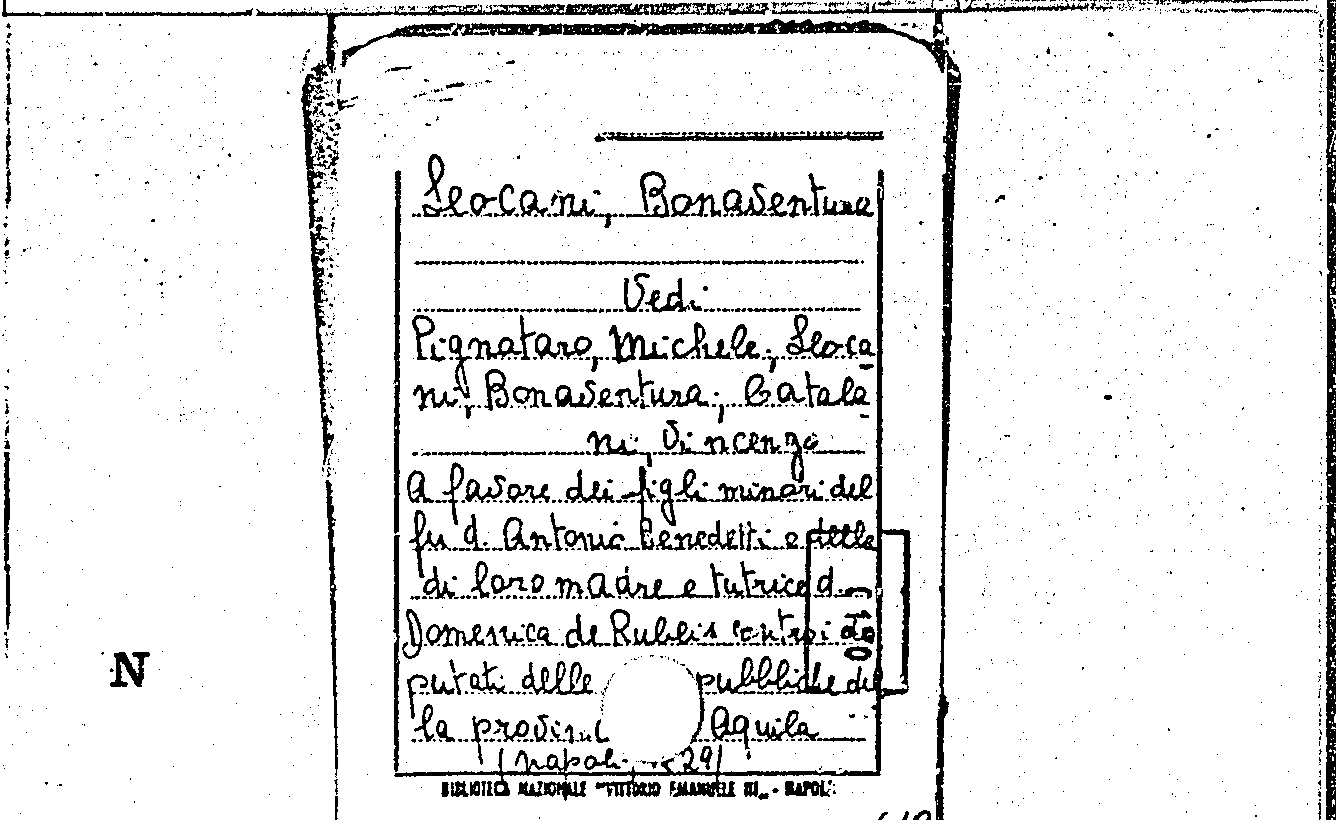 Leocani, Bonaventura
Vedi
Pignataro, Michele; Leoca
ni, Bonaventura; Catala
ni, Vincenzo
A favore dei figli minori del
fu d. Antonio Benedetti e della
di loro madre e tutrice d.
Domenica de Rubeis contro i de
putati delle pubbliche del
la Aquila
(Napoli,
N
BIBLIOTECA NAZIONALE "VITTORIO EMANUELE III" - NAPOLI